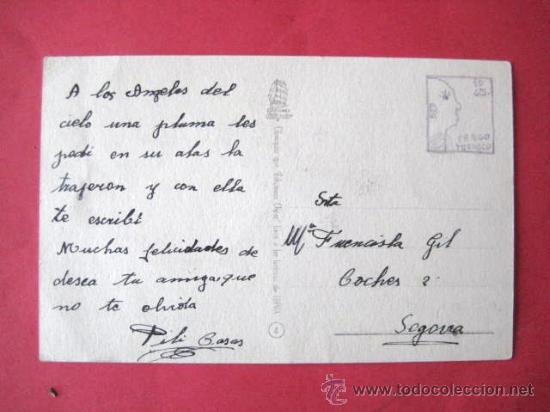 A los Angeles del
cielo una pluma les
pedi en sus alas la
trajeron y con ella
te escribi
Muchas felicidades de
desea tu amiga que
no te olvida
Pili Casas
4
Srta
Mª Fuencisla Gil
Coches 2
Segovia
todocoleccion
http://www.todocoleccion.net